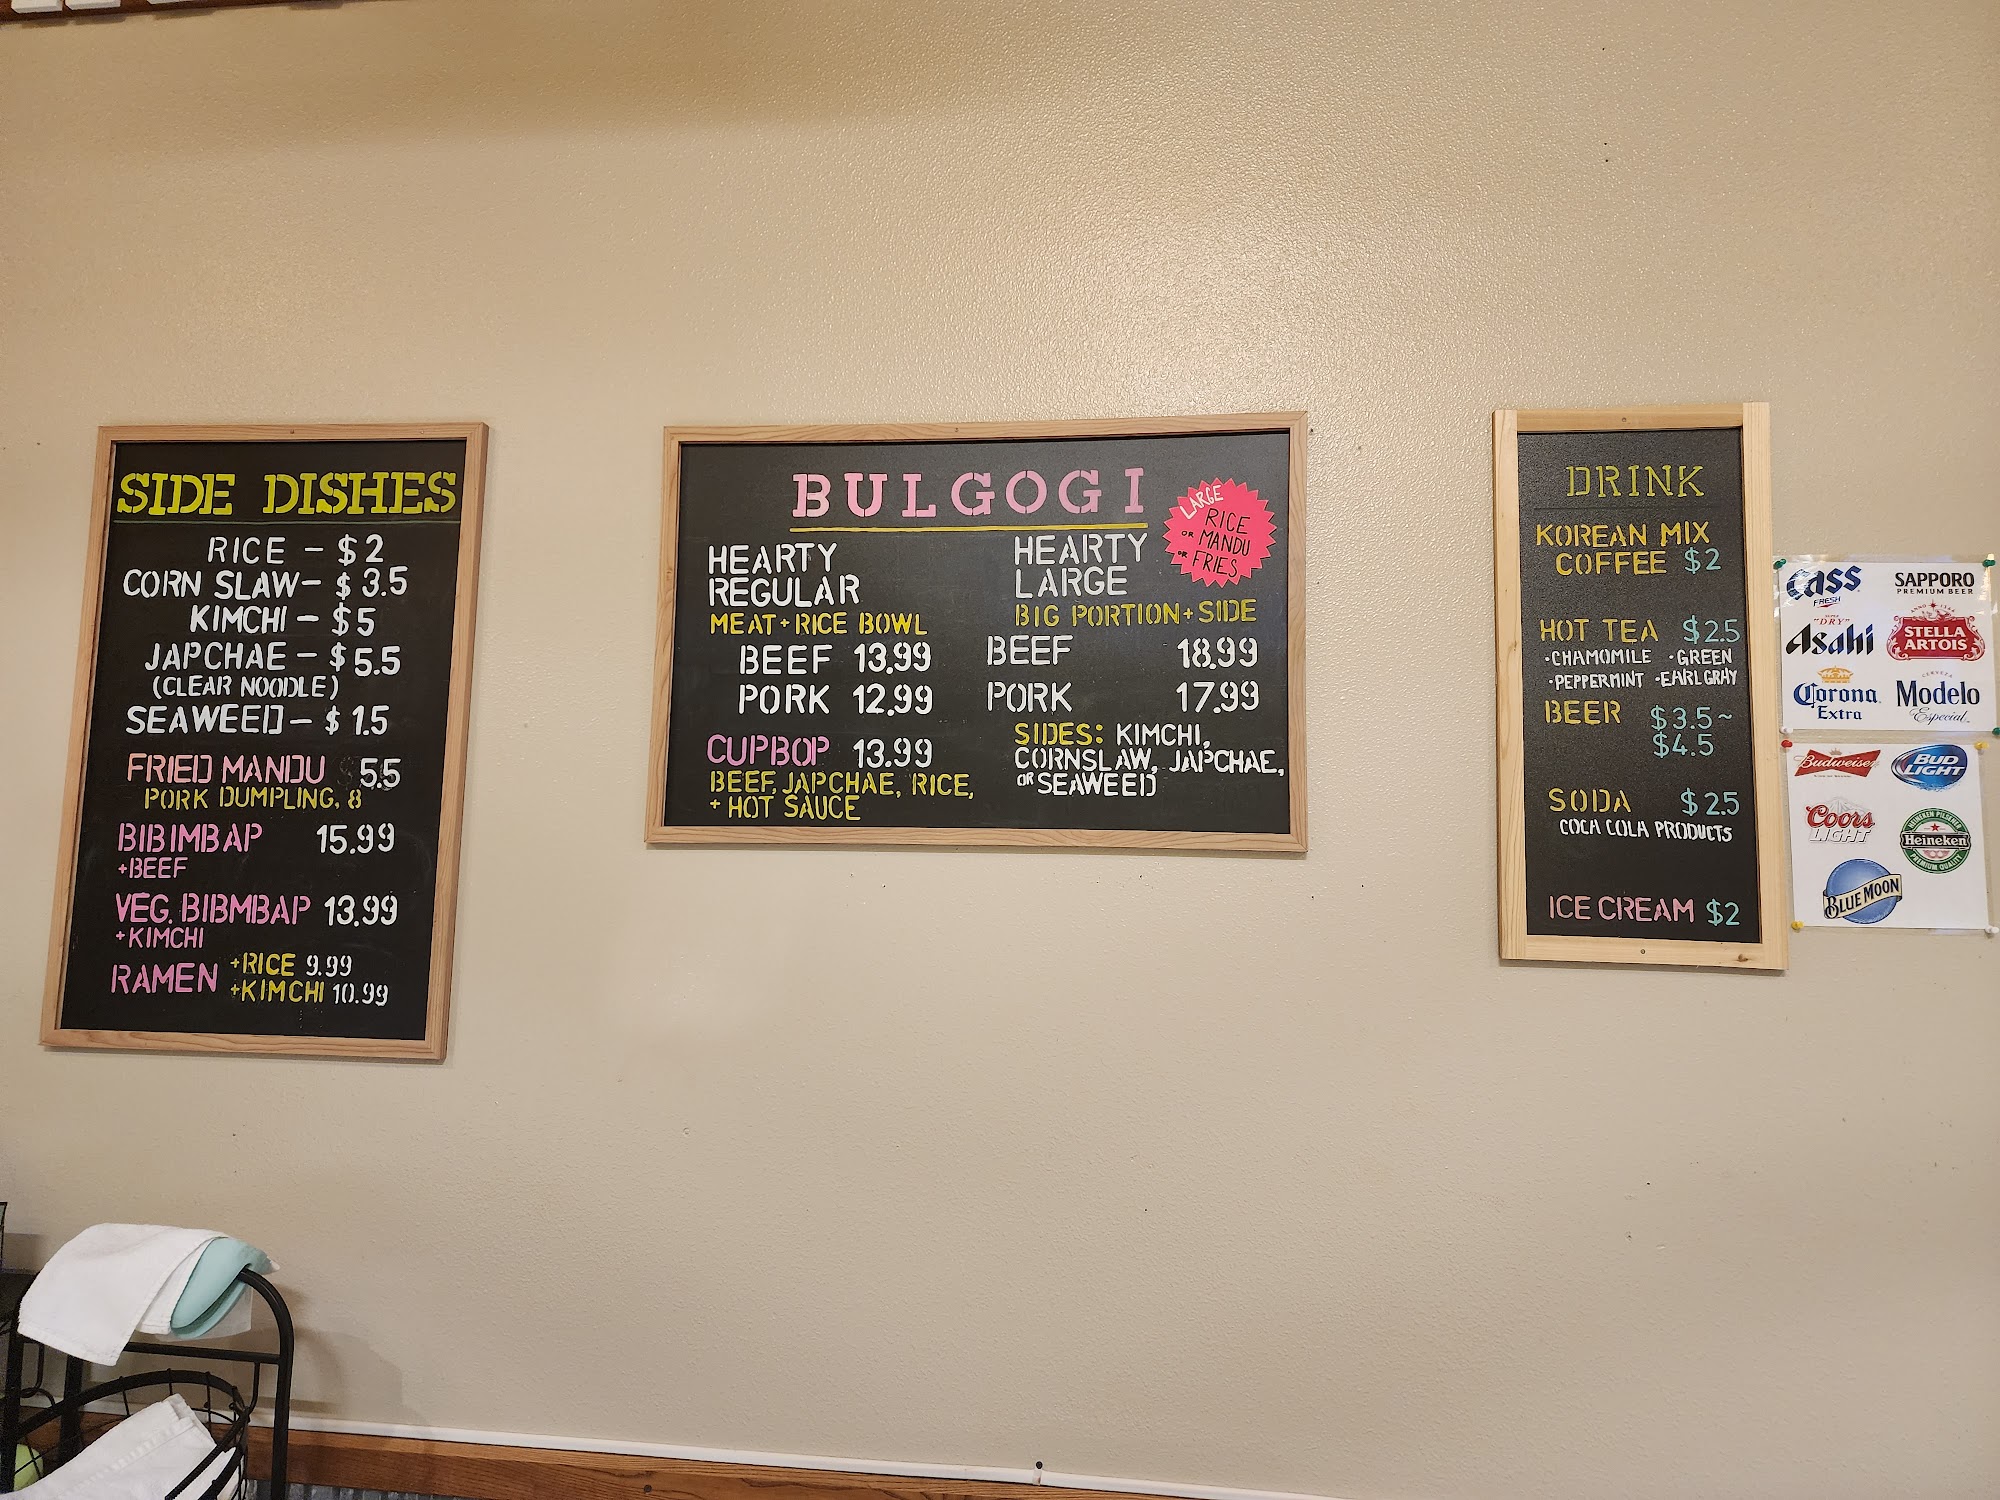 SIDE DISHES
RICE – $2
CORN SLAW – $3.5
KIMCHI – $5
JAPCHAE – $5.5
(CLEAR NOODLE)
SEAWEED – $1.5
FRIED MANDU $5.5
PORK DUMPLING, 8
BIBIMBAP 15.99
+BEEF
VEG. BIBMBAP 13.99
+KIMCHI
RAMEN +RICE 9.99
+KIMCHI 10.99
BULGOGI
HEARTY
REGULAR
MEAT+RICE BOWL
BEEF 13.99
PORK 12.99
CUPBOP 13.99
BEEF, JAPCHAE, RICE,
+ HOT SAUCE
HEARTY
LARGE
BIG PORTION+SIDE
BEEF 18.99
PORK 17.99
SIDES: KIMCHI,
CORNSLAW, JAPCHAE,
OR SEAWEED
LARGE
RICE
OR MANDU
OR FRIES
DRINK
KOREAN MIX
COFFEE $2
HOT TEA $2.5
·CHAMOMILE ·GREEN
·PEPPERMINT ·EARL GRAY
BEER $3.5~
$4.5
SODA $2.5
COCA COLA PRODUCTS
ICE CREAM $2
Cass
FRESH
SAPPORO
PREMIUM BEER
"DRY"
Asahi
STELLA
ARTOIS
Corona
Extra
CERVEZA
Modelo
Especial
Budweiser
BUD
LIGHT
Coors
LIGHT
HEINEKEN PILSENER
Heineken
PREMIUM QUALITY
BLUE MOON